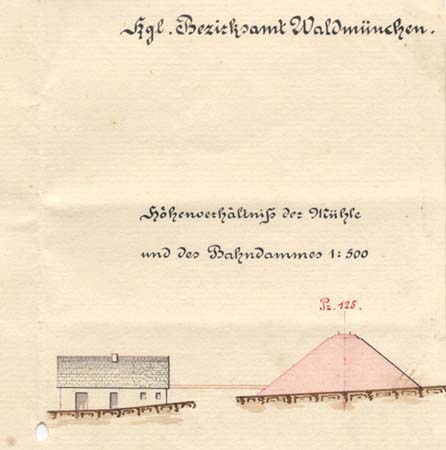 Kgl. Bezirksamt Waldmünchen.
Höhenverhältniß der Mühle
und des Bahndammes 1:500
Pr. 125.